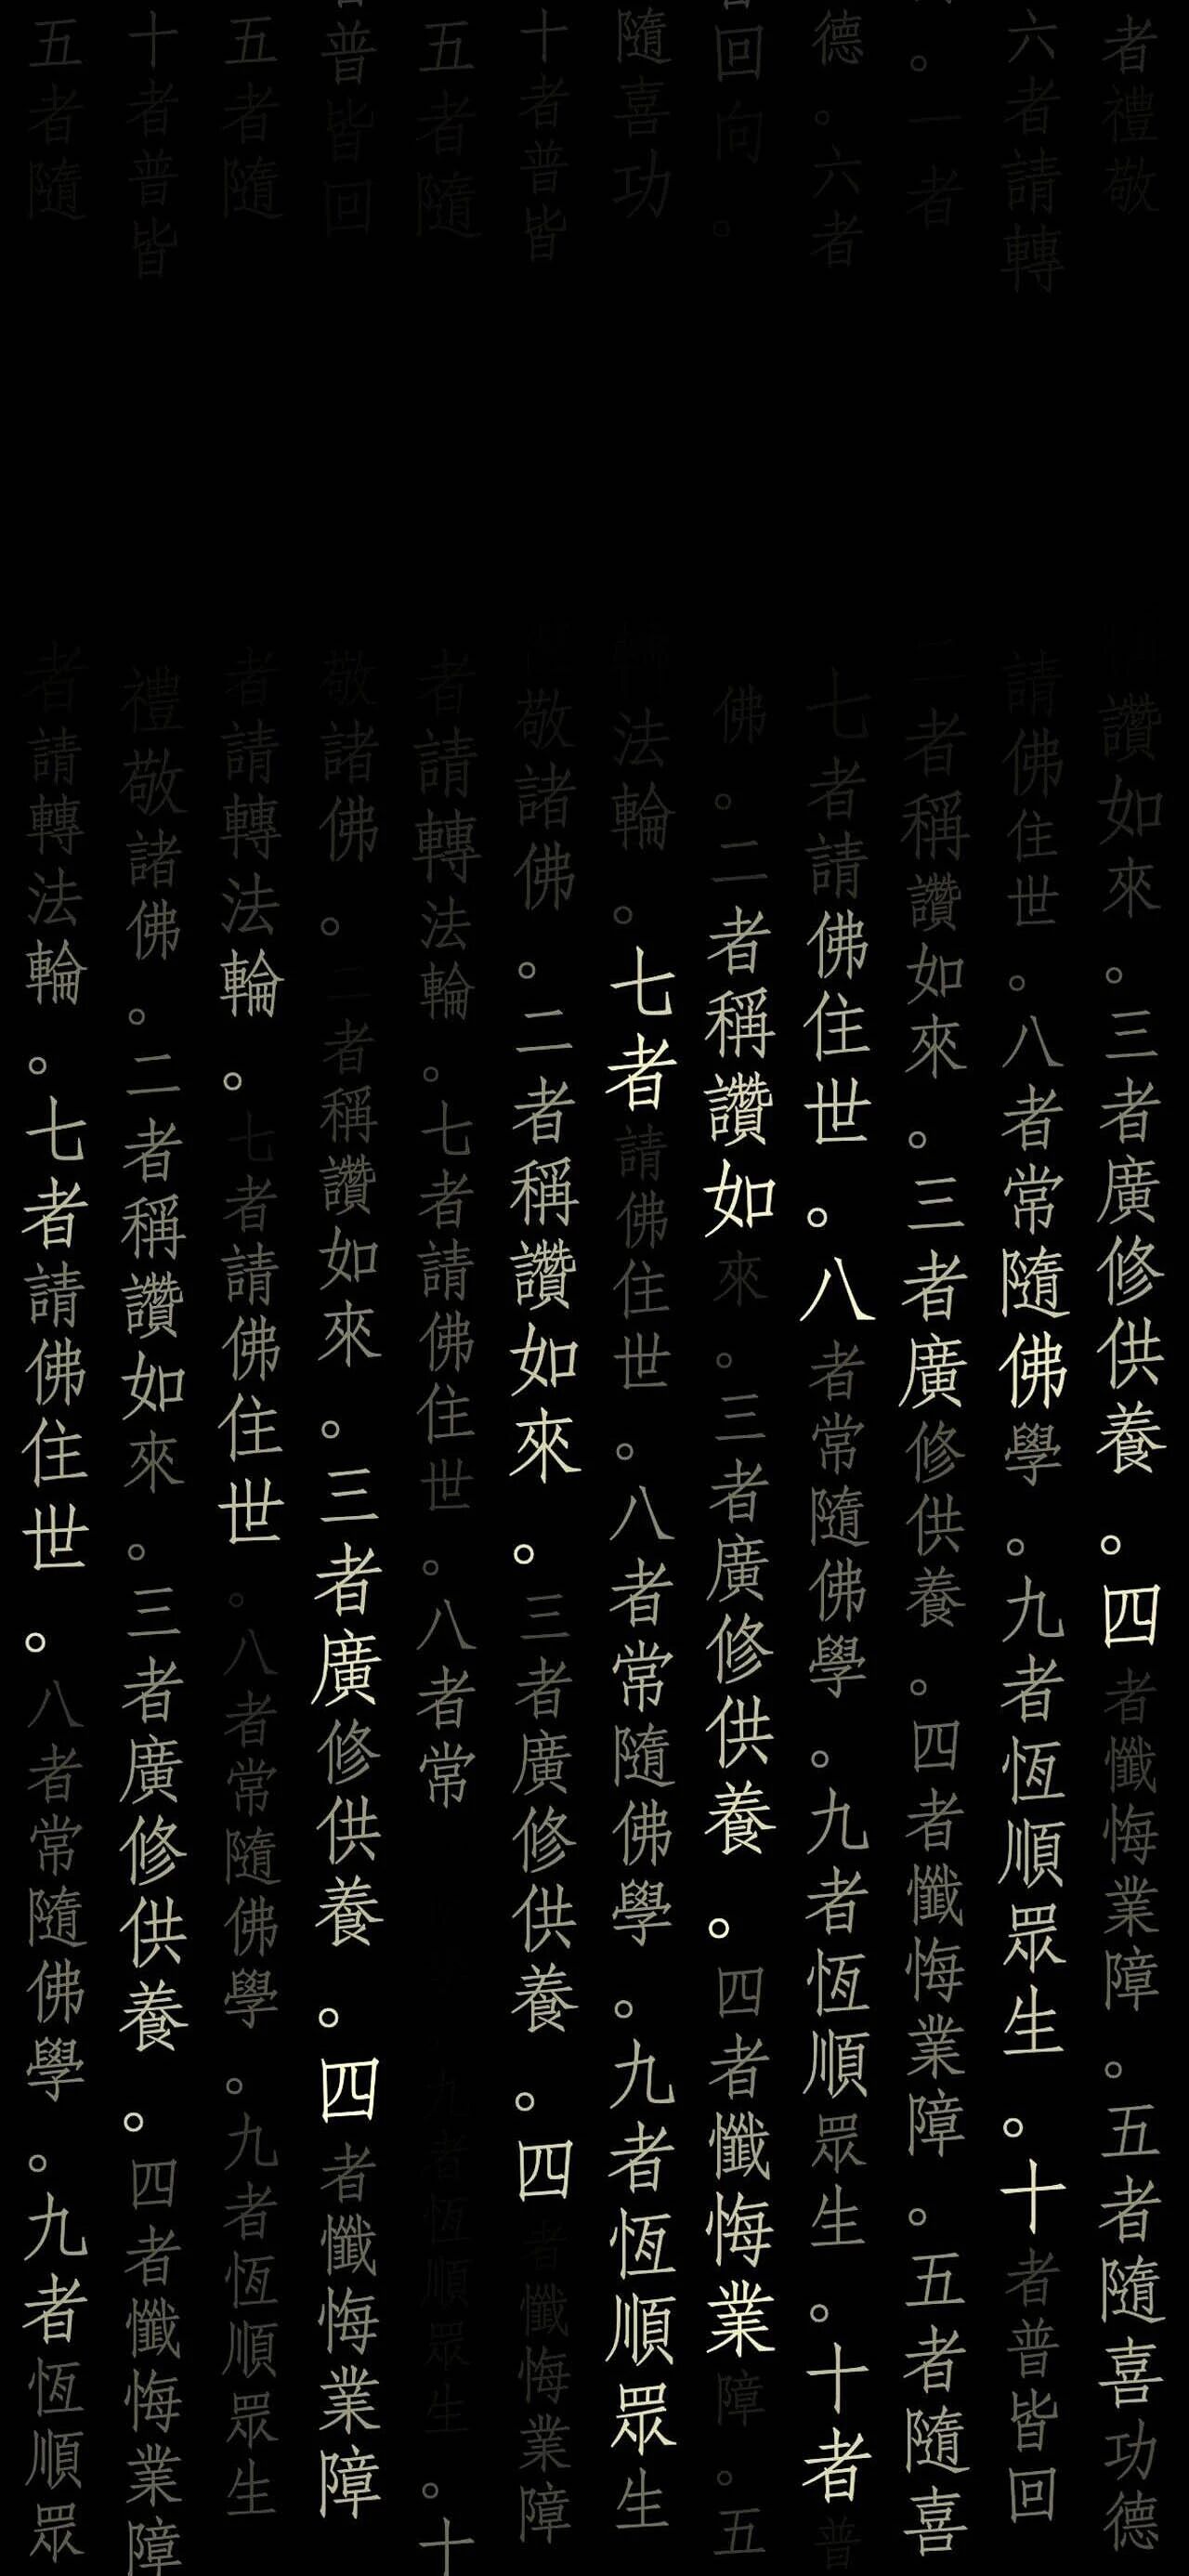 者禮敬 讚如來。三者廣修供養。四者懺悔業障。五者隨喜功德
六者請轉 請佛住世。八者常隨佛學。九者恆順眾生。十者普皆回
。一者 二者稱讚如來。三者廣修供養。四者懺悔業障。五者隨喜
德。六者 七者請佛住世。八者常隨佛學。九者恆順眾生。十者普
回向。 佛。二者稱讚如來。三者廣修供養。四者懺悔業障。五
隨喜功 法輪。七者請佛住世。八者常隨佛學。九者恆順眾生
十者普皆 敬諸佛。二者稱讚如來。三者廣修供養。四者懺悔業障
五者隨 者請轉法輪。七者請佛住世。八者常 九者恆順眾生。十
普皆回 敬諸佛。二者稱讚如來。三者廣修供養。四者懺悔業障
五者隨 者請轉法輪。七者請佛住世。八者常隨佛學。九者恆順眾生
十者普皆 禮敬諸佛。二者稱讚如來。三者廣修供養。四者懺悔業障
五者隨 者請轉法輪。七者請佛住世。八者常隨佛學。九者恆順眾